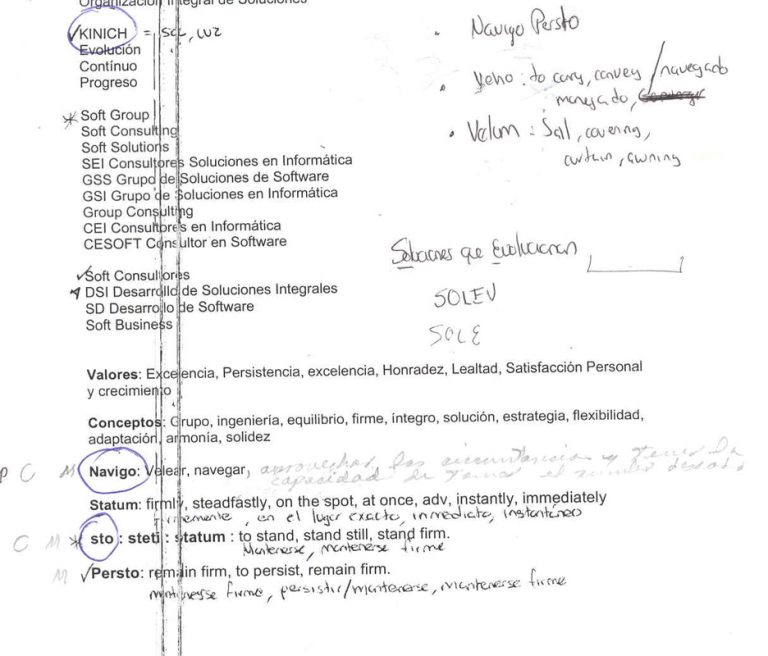 Organización Integral de Soluciones
✓KINICH = SOL, LUZ
Evolución
Contínuo
Progreso
• Navigo Persto
• Veho : to cary, convey / navegado
manejado,
• Velum : Sail, covering,
curtain, awning
* Soft Group
Soft Consulting
Soft Solutions
SEI Consultores Soluciones en Informática
GSS Grupo de Soluciones de Software
GSI Grupo de Soluciones en Informática
Group Consulting
CEI Consultores en Informática
CESOFT Consultor en Software
Soluciones que Evolucionan
✓Soft Consultores
DSI Desarrollo de Soluciones Integrales
SD Desarrollo de Software
Soft Business
SOLEV
SOLE
Valores: Excelencia, Persistencia, excelencia, Honradez, Lealtad, Satisfacción Personal
y crecimiento
Conceptos: Grupo, ingeniería, equilibrio, firme, íntegro, solución, estrategia, flexibilidad,
adaptación, armonía, solidez
P C M Navigo: Velear, navegar, aprovechar las circunstancias y tener la
capacidad de tomar el rumbo deseado
Statum: firmly, steadfastly, on the spot, at once, adv, instantly, immediately
firmemente, en el lugar exacto, inmediato, instantáneo
C M * sto : steti : statum : to stand, stand still, stand firm.
Mantenerse, mantenerse firme
M ✓Persto: remain firm, to persist, remain firm.
firme, persistir/mantenerse, mantenerse firme